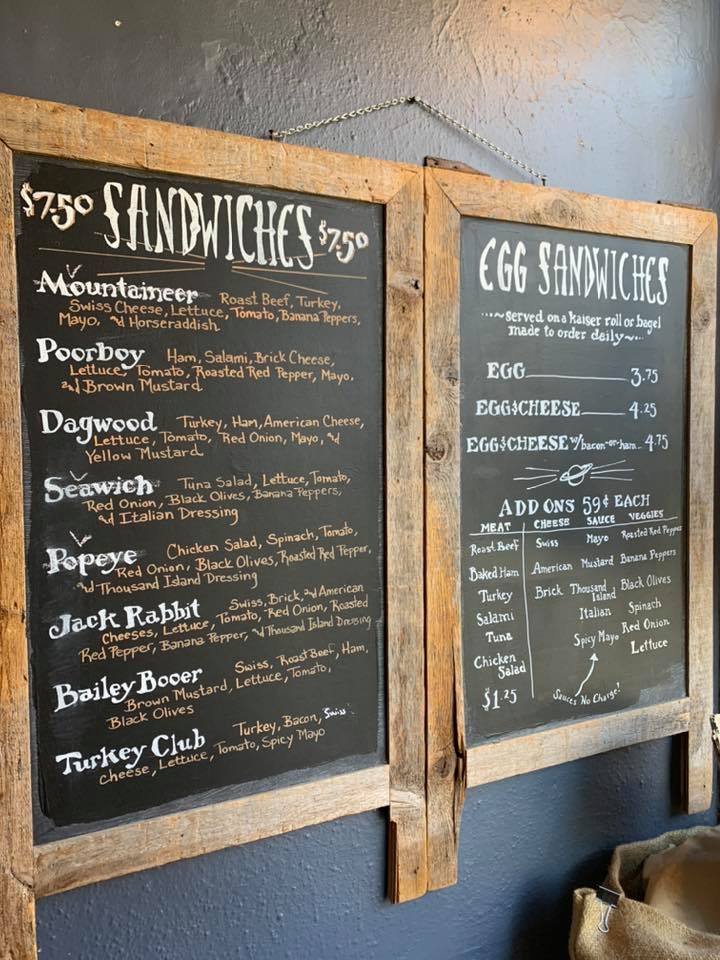 $7.50 SANDWICHES $7.50
Mountaineer Roast Beef, Turkey,
Swiss Cheese, Lettuce, Tomato, Banana Peppers,
Mayo, and Horseraddish
Poorboy Ham, Salami, Brick Cheese,
Lettuce, Tomato, Roasted Red Pepper, Mayo,
and Brown Mustard
Dagwood Turkey, Ham, American Cheese,
Lettuce, Tomato, Red Onion, Mayo, and
Yellow Mustard
Seawich Tuna Salad, Lettuce, Tomato,
Red Onion, Black Olives, Banana Peppers,
and Italian Dressing
Popeye Chicken Salad, Spinach, Tomato,
Red Onion, Black Olives, Roasted Red Pepper,
and Thousand Island Dressing
Jack Rabbit Swiss, Brick, and American
Cheeses, Lettuce, Tomato, Red Onion, Roasted
Red Pepper, Banana Pepper, and Thousand Island Dressing
Bailey Booer Swiss, Roast Beef, Ham,
Brown Mustard, Lettuce, Tomato,
Black Olives
Turkey Club Turkey, Bacon, Swiss
Cheese, Lettuce, Tomato, Spicy Mayo
EGG SANDWICHES
...~served on a kaiser roll or bagel
made to order daily~...
EGG 3.75
EGG & CHEESE 4.25
EGG & CHEESE w/bacon-or-ham... 4.75
ADD ONS 59¢ EACH
MEAT CHEESE SAUCE VEGGIES
Roast Beef Swiss Mayo Roasted Red Pepper
Baked Ham American Mustard Banana Peppers
Turkey Brick Thousand Island Black Olives
Salami Italian Spinach
Tuna Spicy Mayo Red Onion
Chicken Salad Lettuce
$1.25 Sauces No Charge!